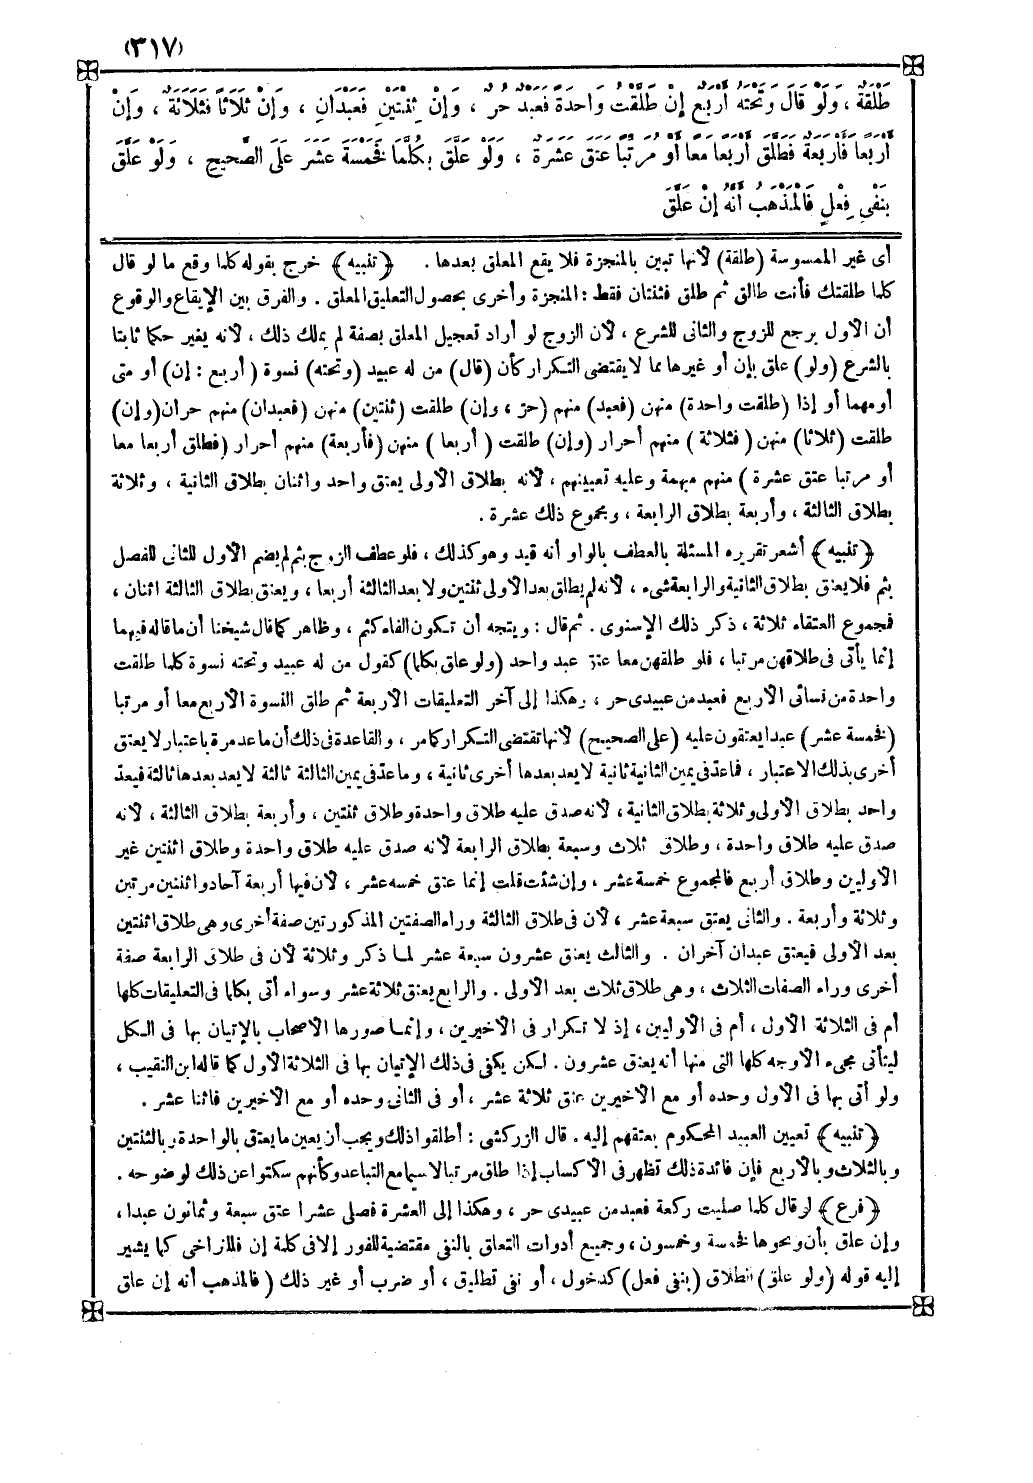 (٣١٧)
طَلْقَةٌ ، وَلَوْ قَالَ وَتَحْتَهُ أَرْبَعٌ إِنْ طَلَّقْتُ وَاحِدَةً فَعَبْدٌ حُرٌّ ، وَإِنْ ثِنْتَيْنِ فَعَبْدَانِ ، وَإِنْ ثَلَاثًا فَثَلَاثَةٌ ، وَإِنْ
أَرْبَعًا فَأَرْبَعَةٌ فَطَلَّقَ أَرْبَعًا مَعًا أَوْ مُرَتَّبًا عَتَقَ عَشَرَةٌ ، وَلَوْ عَلَّقَ بِكُلَّمَا فَخَمْسَةَ عَشَرَ عَلَى الصَّحِيحِ ، وَلَوْ عَلَّقَ
بِنَفْيِ فِعْلٍ فَالْمَذْهَبُ أَنَّهُ إِنْ عَلَّقَ
أى غير الممسوسة (طلقة) لأنها تبين بالمنجزة فلا يقع المعلق بعدها . ﴿ تنبيه ﴾ خرج بقوله كلما وقع ما لو قال
كلما طلقتك فأنت طالق ثم طلق فثنتان فقط : المنجزة وأخرى بحصول التعليق المعلق . والفرق بين الإيقاع والوقوع
أن الأول يرجع للزوج والثانى للشرع ، لأن الزوج لو أراد تعجيل المعلق بصفة لم يملك ذلك ، لأنه يغير حكما ثابتا
بالشرع (ولو) علق بإن أو غيرها مما لا يقتضى التكرار كأن (قال) من له عبيد (وتحته) نسوة ( أربع : إن) أو متى
أو مهما أو إذا (طلقت واحدة) منهن (فعبد) منهم (حر ، وإن) طلقت (ثنتين) منهن (فعبدان) منهم حران (وإن)
طلقت (ثلاثا) منهن ( فثلاثة ) منهم أحرار (وإن) طلقت ( أربعا ) منهن (فأربعة) منهم أحرار (فطلق أربعا معا
أو مرتبا عتق عشرة ) منهم مبهمة وعليه تعيينهم ، لأنه بطلاق الأولى يعتق واحد واثنان بطلاق الثانية ، وثلاثة
بطلاق الثالثة ، وأربعة بطلاق الرابعة ، ومجموع ذلك عشرة .
﴿ تنبيه ﴾ أشعر تقريره المسئلة بالعطف بالواو أنه قيد وهو كذلك ، فلو عطف الزوج بثم لم يضم الأول للثانى للفصل
بثم فلا يعتق بطلاق الثانية والرابعة شىء ، لأنه لم يطلق بعد الأولى ثنتين ولا بعد الثالثة أربعا ، ويعتق بطلاق الثالثة اثنان ،
فمجموع العتقاء ثلاثة ، ذكر ذلك الإسنوى . ثم قال : ويتجه أن تكون الفاء كثم ، وظاهر كما قال شيخنا أن ما قاله فيهما
إنما يأتى فى طلاقهن مرتبا ، فلو طلقهن معا عتق عبد واحد (ولو علق بكلما) كقول من له عبيد وتحته نسوة كلما طلقت
واحدة من نسائى الأربع فعبد من عبيدى حر ، وهكذا إلى آخر التعليقات الأربعة ثم طلق النسوة الأربع معا أو مرتبا
(فخمسة عشر) عبدا يعتقون عليه (على الصحيح) لأنها تقتضى التكرار كما مر ، والقاعدة فى ذلك أن ما عد مرة باعتبار لا يعتق
أخرى بذلك الاعتبار ، فما عد فى يمين الثانية ثانية لا يعد بعدها أخرى ثانية ، وما عد فى يمين الثالثة ثالثة لا يعد بعدها ثالثة فيعد
واحد بطلاق الأولى وثلاثة بطلاق الثانية ، لأنه صدق عليه طلاق واحدة وطلاق ثنتين ، وأربعة بطلاق الثالثة ، لأنه
صدق عليه طلاق واحدة ، وطلاق ثلاث وسبعة بطلاق الرابعة لأنه صدق عليه طلاق واحدة وطلاق اثنتين غير
الأوليين وطلاق أربع فالمجموع خمسة عشر ، وإن شئت قلت إنما عتق خمسة عشر ، لأن فيها أربعة آحاد واثنتين مرتين
وثلاثة وأربعة . والثانى يعتق سبعة عشر ، لأن فى طلاق الثالثة وراء الصفتين المذكورتين صفة أخرى وهى طلاق اثنتين
بعد الأولى فيعتق عبدان آخران . والثالث يعتق عشرون سبعة عشر لما ذكر وثلاثة لأن فى طلاق الرابعة صفة
أخرى وراء الصفات الثلاث ، وهى طلاق ثلاث بعد الأولى . والرابع يعتق ثلاثة عشر وسواء أتى بكلما فى التعليقات كلها
أم فى الثلاثة الأول ، أم فى الأوليين ، إذ لا تكرار فى الأخيرين ، وإنما صورها الأصحاب بالإتيان بها فى الكل
ليتأتى مجىء الأوجه كلها التى منها أنه يعتق عشرون . لكن يكفى فى ذلك الإتيان بها فى الثلاثة الأول كما قاله ابن النقيب ،
ولو أتى بها فى الأول وحده أو مع الأخيرين عتق ثلاثة عشر ، أو فى الثانى وحده أو مع الأخيرين فاثنا عشر .
﴿ تنبيه ﴾ تعيين العبيد المحكوم بعتقهم إليه . قال الزركشى : أطلقوا ذلك ويجب أن يعين ما يعتق بالواحدة وبالثنتين
وبالثلاث وبالأربع فإن فائدة ذلك تظهر فى الأكساب إذا طلق مرتبا لاسيما مع التباعد وكأنهم سكتوا عن ذلك لوضوحه .
﴿ فرع ﴾ لو قال كلما صليت ركعة فعبد من عبيدى حر ، وهكذا إلى العشرة فصلى عشرا عتق سبعة وثمانون عبدا ،
وإن علق بأن ونحوها فخمسة وخمسون ، وجميع أدوات التعلق بالنفى مقتضية للفور إلا فى كلمة إن فللتراخى كما يشير
إليه قوله (ولو علق) الطلاق (بنفى فعل) كدخول ، أو نفى تطليق ، أو ضرب أو غير ذلك ( فالمذهب أنه إن علق